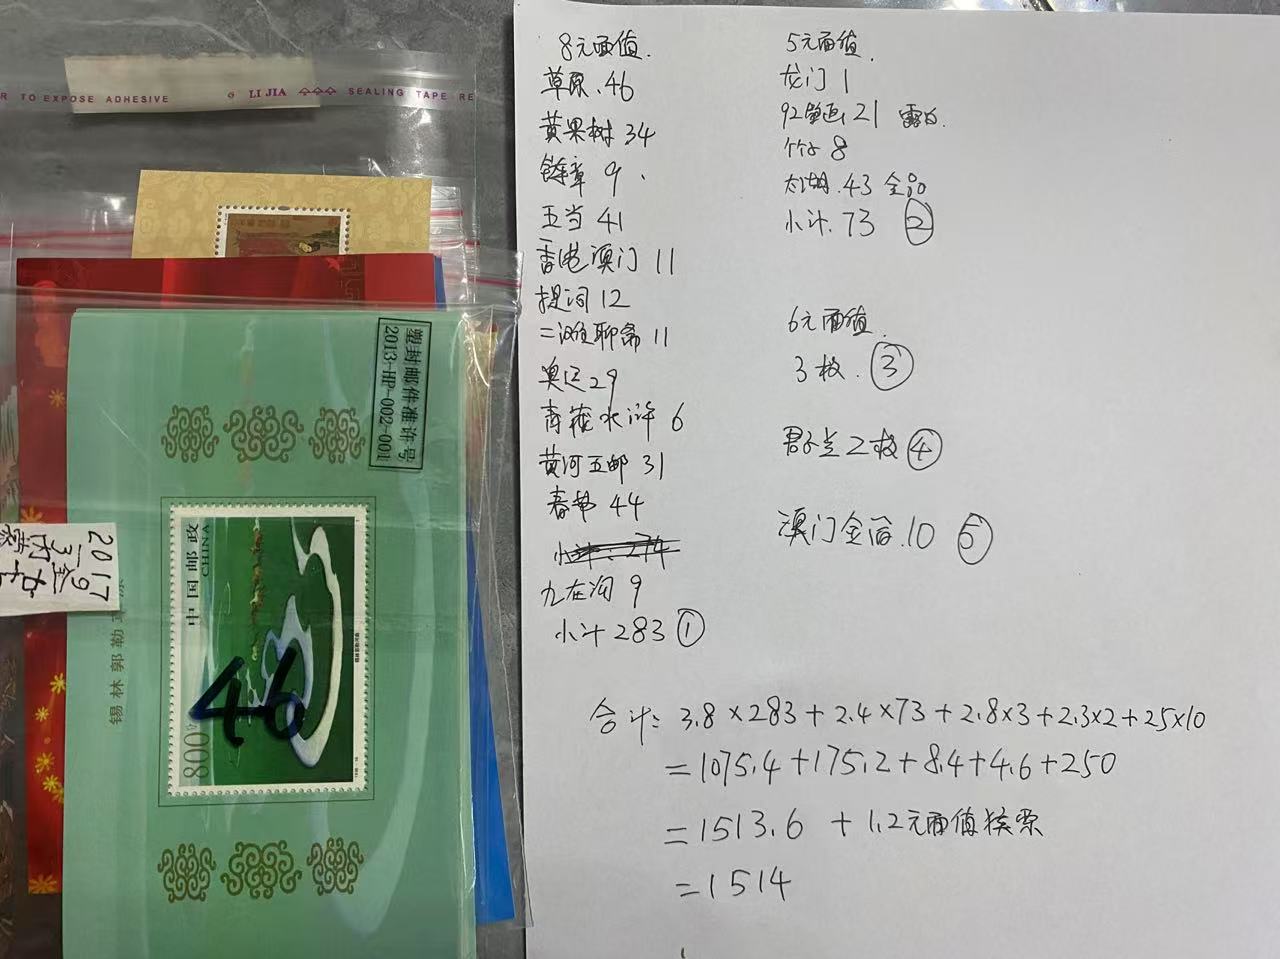 R TO EXPOSE ADHESIVE LI JIA SEALING TAPE RE
塑封邮件准许号
2013-HP-002-001
中国邮政
CHINA
800
46
锡林郭勒草原
2017
8元面值.
草原.46
黄果树 34
9.
五当 41
香港澳门 11
提词 12
二滩聊斋 11
奥运29
水浒 6
黄河五邮 31
春节 44
小计:274
九在沟 9
小计283①
5元面值.
龙门1
21
竹子8
太湖.43 全品
小计.73 ②
6元面值.
3枚.③
君子兰2枚④
澳门金箔.10 ⑤
合计:3.8×283+2.4×73+2.8×3+2.3×2+25×10
=1075.4+175.2+8.4+4.6+250
=1513.6 +1.2元面值
=1514